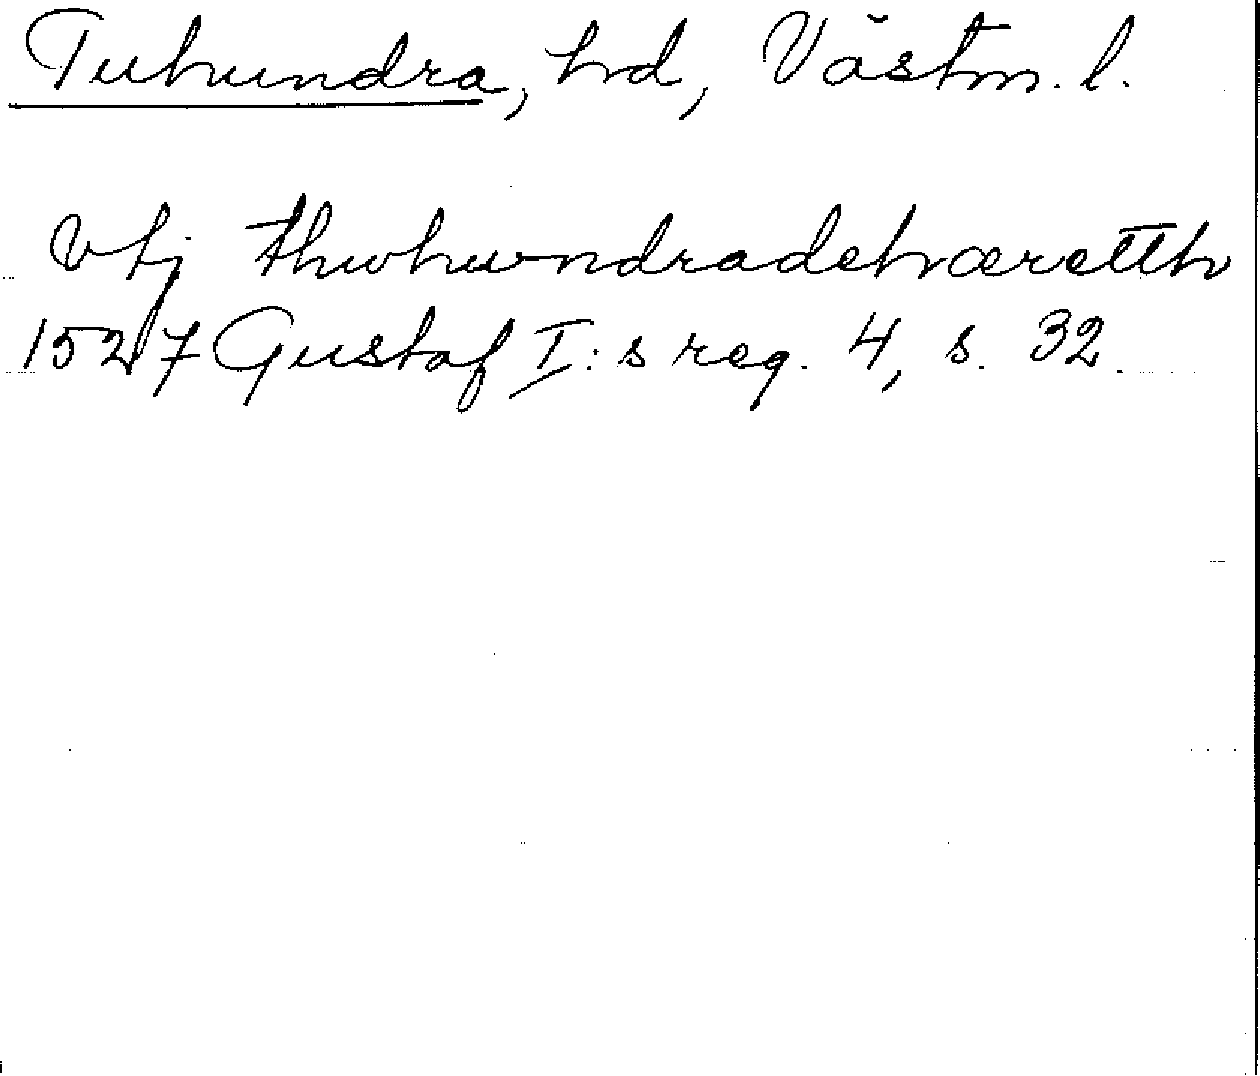 Tuhundra, hd, Västm. l.
vtj thwhwndradehæretth
1527 Gustaf I:s reg. 4, s. 32.